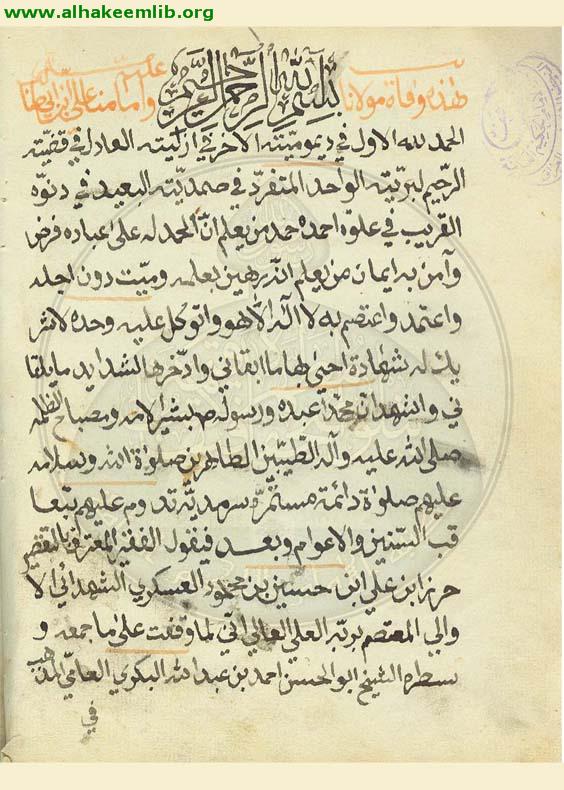 www.alhakeemlib.org
هذه وفاة مولانا بسم الله الرحمن الرحيم وامامنا علي ابن ابي طالب عليه
الحمد لله الاول في ديموميّته الاخر في ازليّته العادل في قضيّته
الرحيم لبريّته الواحد المتفرّد في صمديّته البعيد في دنوّه
القريب في علوّه احمده حمد من يعلم انّ الحمد له على عباده فرض
وآمن به ايمان من يعلم انّه رهين بعلمه وميّت دون اجله
واعتمد واعتصم به لا اله الاّ هو واتوكّل عليه وحده لا شر
يك له شهادة احيي بها ما ابقاني وادّخرها لشدايد ما يلقا
ني واشهد ان محمدا عبده ورسوله بشير الامه ومصباح الظلمه
صلى الله عليه وآله الطيّبين الطاهرين صلواة الله وسلامه
عليهم صلواة دائمة مستمرّه سرمديّة تدوم عليهم بتعا
قب السّنين والاعوام وبعد فيقول الفقير المعترف بالتقصير
حرز ابن علي ابن حسين بن محمود العسكري الشهدائي الا
والي المعتصم بربّه العلي العالي انّي لما وقفت على ما جمعه و
سطره الشيخ ابو الحسن احمد بن عبد الله البكري العامّي المذهب
في